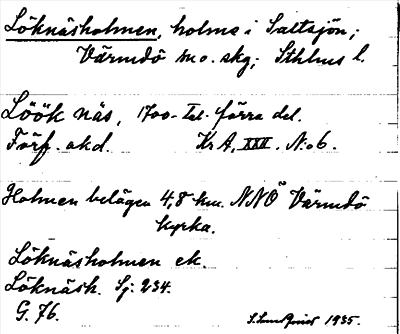 Löknäsholmen, holme i Saltsjön;
Värmdö mo. skg; Sthlms l.
Löök näs, 1700-tal. förra del.
Förf. okd. Kr A, XXII. N:o 6.
Holmen belägen 4,8 km. NNÖ Värmdö
kyrka.
Löknäsholmen ek.
Löknäsh. Sj: 234.
G. 76.
1935.